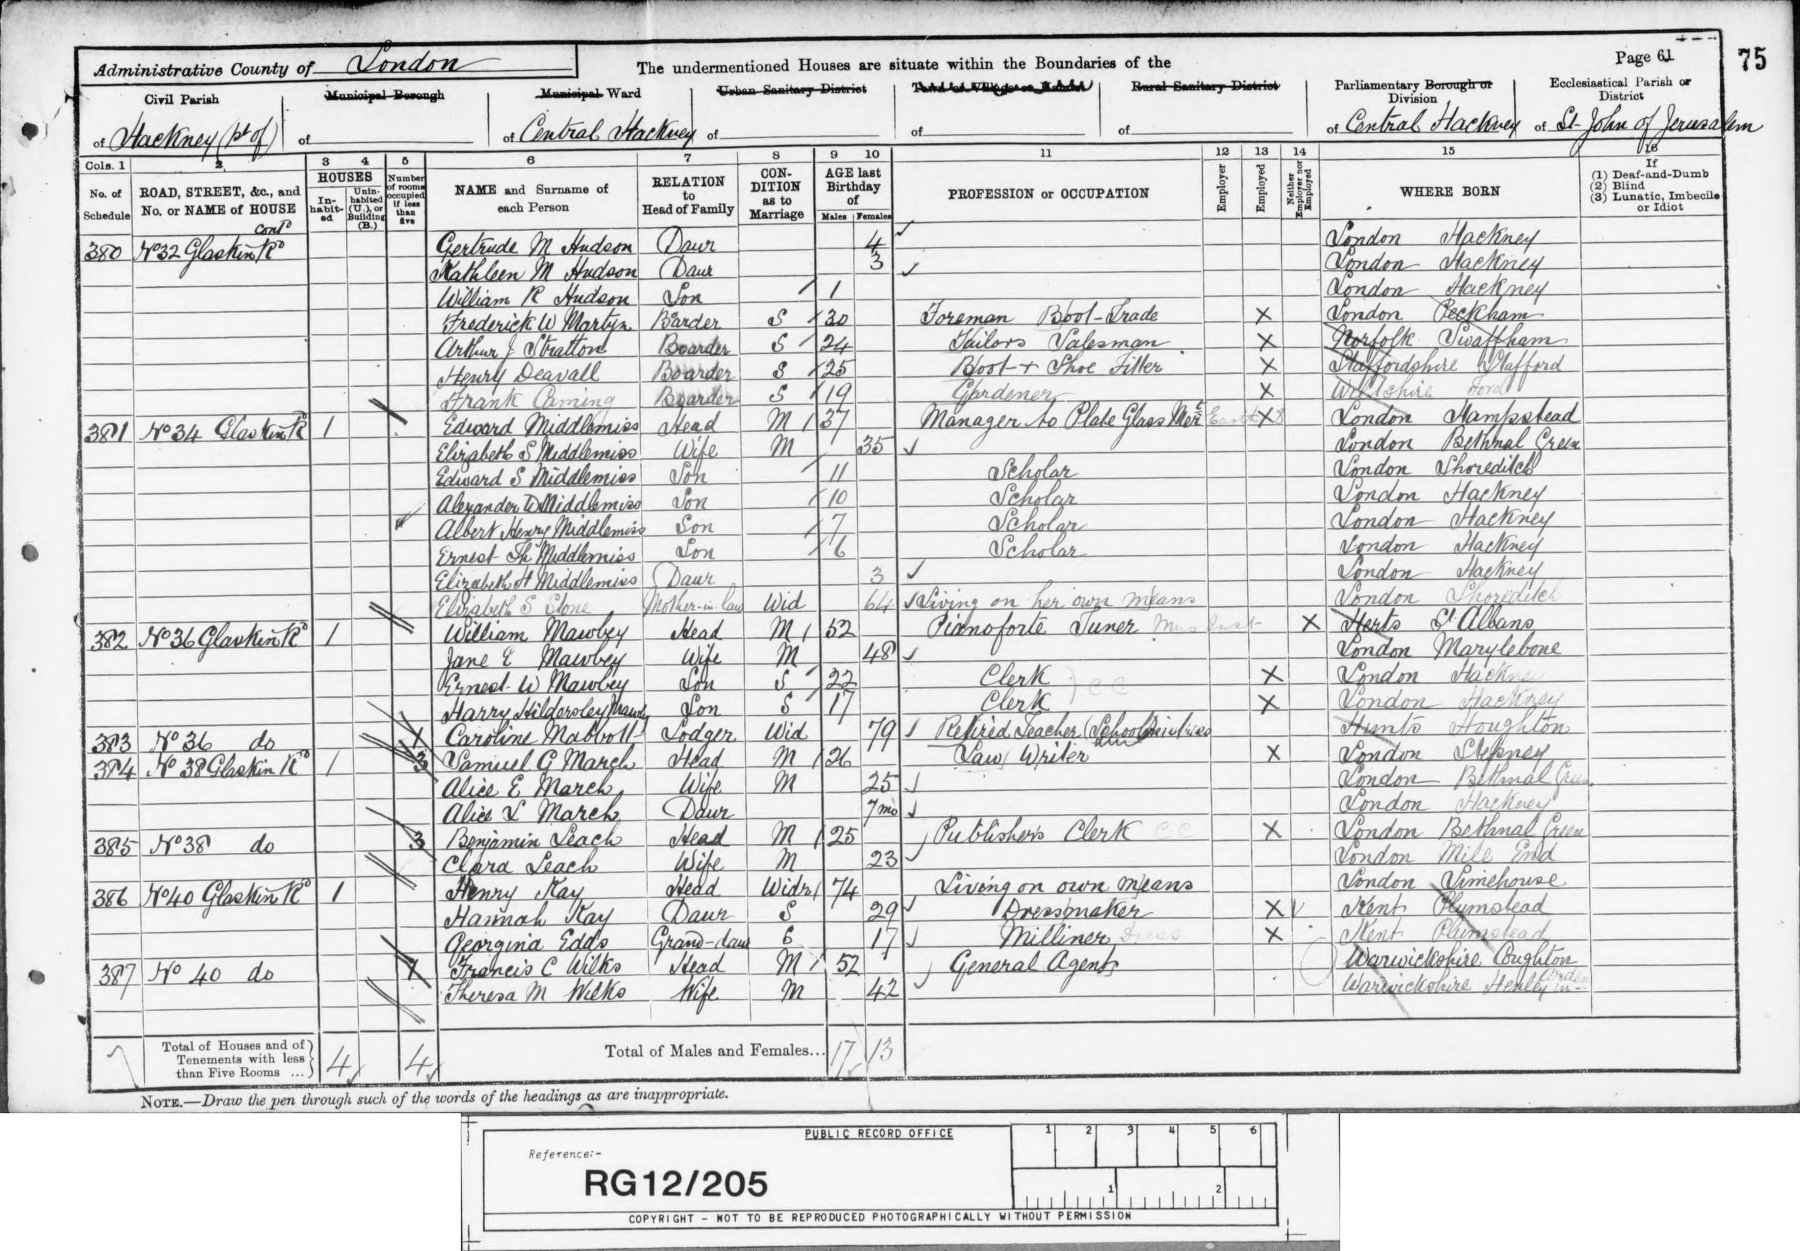 Page 61
75
Administrative County of London
The undermentioned Houses are situate within the Boundaries of the
Civil Parish of Hackney (pt of)
Municipal Borough of
Municipal Ward of Central Hackney
Urban Sanitary District of
of
Rural Sanitary District of
Parliamentary Borough or Division of Central Hackney
Ecclesiastical Parish or District of St John of Jerusalem
Cols. 1 2 3 4 5 6 7 8 9 10 11 12 13 14 15 16
No. of Schedule
ROAD, STREET, &c., and No. or NAME of HOUSE
HOUSES
In-habit-ed
Unin-habited (U.), or Building (B.)
Number of rooms occupied if less than five
NAME and Surname of each Person
RELATION to Head of Family
CON-DITION as to Marriage
AGE last Birthday of
Males Females
PROFESSION or OCCUPATION
Employer
Employed
Neither Employer nor Employed
WHERE BORN
If
(1) Deaf-and-Dumb
(2) Blind
(3) Lunatic, Imbecile or Idiot
Contd
380 No 32 Glaskin Rd Gertrude M Hudson Daur 4 London Hackney
Kathleen M Hudson Daur 3 London Hackney
William R Hudson Son 1 London Hackney
Frederick W Martyn Boarder S 30 Foreman Boot-Trade X London Peckham
Arthur J Stratton Boarder S 24 Tailors Salesman X Norfolk Swaffham
Henry Deavall Boarder S 25 Boot + Shoe Fitter X Staffordshire Stafford
Frank Boarder S 19 Gardener X Wiltshire
381 No 34 Glaskin Rd 1 Edward Middlemiss Head M 37 Manager to Plate Glass Mert X London Hampstead
Elizabeth S Middlemiss Wife M 35 London Bethnal Green
Edward S Middlemiss Son 11 Scholar London Shoreditch
Alexander W Middlemiss Son 10 Scholar London Hackney
Albert Henry Middlemiss Son 7 Scholar London Hackney
Ernest Middlemiss Son 6 Scholar London Hackney
Elizabeth H Middlemiss Daur 3 London Hackney
Elizabeth S Stone Mother-in-law Wid 64 Living on her own means London Shoreditch
382 No 36 Glaskin Rd 1 William Mawbey Head M 52 Pianoforte Tuner X Herts St Albans
Jane E Mawbey Wife M 48 London Marylebone
Ernest W Mawbey Son S 22 Clerk X London Hackney
Harry Hildersley Mawbey Son S 17 Clerk X London Hackney
383 No 36 do 1 Caroline Mabbott Lodger Wid 79 Retired Teacher (School Hunts Houghton
384 No 38 Glaskin Rd 1 3 Samuel G March Head M 26 Law Writer X London Stepney
Alice E March Wife M 25 London Bethnal Green
Alice L March Daur 7 mo London Hackney
385 No 38 do 3 Benjamin Leach Head M 25 Publishers Clerk X London Bethnal Green
Clara Leach Wife M 23 London Mile End
386 No 40 Glaskin Rd 1 Henry Kay Head Widr 74 Living on own means London Limehouse
Hannah Kay Daur S 29 Dressmaker X Kent Plumstead
Georgina Edds Grand-daur S 17 Milliner X Kent Plumstead
387 No 40 do 1 Francis C Wilks Head M 52 General Agent Warwickshire Coughton
Theresa M Wilks Wife M 42 Warwickshire Henley in
Total of Houses and of Tenements with less than Five Rooms ... 4 4
Total of Males and Females... 17 13
NOTE.—Draw the pen through such of the words of the headings as are inappropriate.
PUBLIC RECORD OFFICE
1 2 3 4 5 6
Reference:-
RG12/205
1 2
COPYRIGHT - NOT TO BE REPRODUCED PHOTOGRAPHICALLY WITHOUT PERMISSION